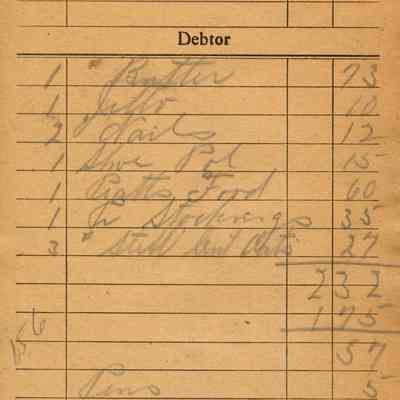 Debtor
1 " Butter 73
1 Jello 10
2 " Nails 12
1 Shoe Pol 15
1 Pratts Food 60
1 Pr Stockings 35
3 " Cut Oats 27
232
175
57
Pens 5